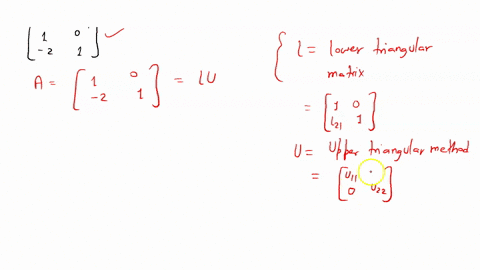 [1 0
-2 1] ✓
A = [1 0
-2 1] = LU
{ L = lower triangular
matrix
= [1 0
L21 1]
U = Upper triangular method
= [U11
0 U22]